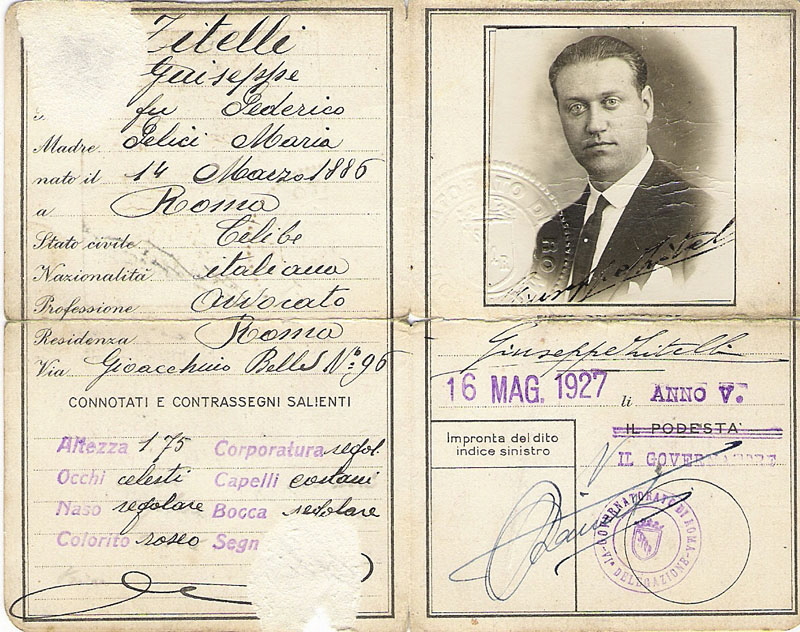 Zitelli
Guiseppe
fu Federico
Madre Felici Maria
nato il 14 Marzo 1886
a Roma
Stato civile Celibe
Nazionalità italiana
Professione Avvocato
Residenza Roma
Via Gioacchino Belli N.º 96
CONNOTATI E CONTRASSEGNI SALIENTI
Altezza 1.75 Corporatura regol.
Occhi celesti Capelli castani
Naso regolare Bocca regolare
Colorito roseo Segn
Giuseppe Zitelli
Giuseppe Zitelli
16 MAG. 1927 li ANNO V.
IL PODESTA'
IL GOVERNATORE
Impronta del dito
indice sinistro
GOVERNATORATO DI ROMA
DELEGAZIONE